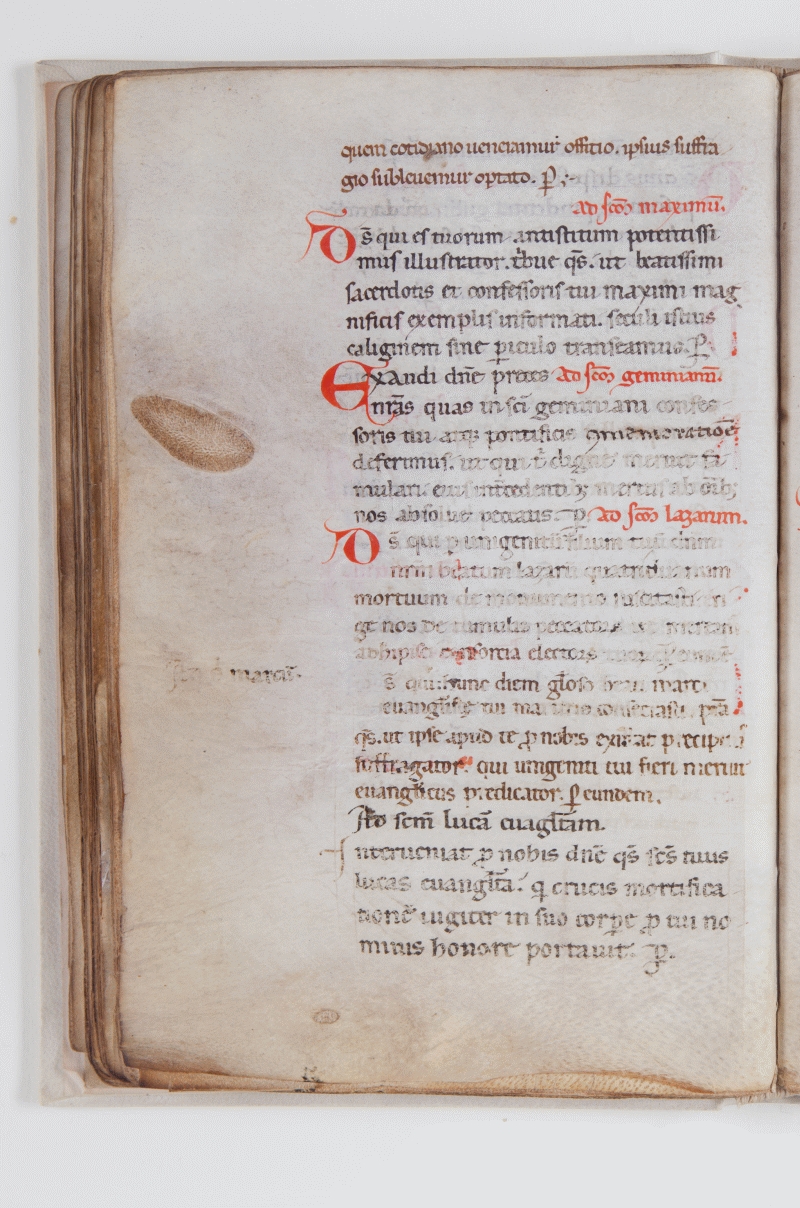 quem cotidiano ueneramur offitio. ipsius suffra
gio subleuemur optato. P̲ ;-
Ad sc̅o̅ꝫ maximu̅.
Ds̅ qui es tuorum antistitum potentissi
mus illustrator. tribue qs̅. ut beatissimi
sacerdotis et confessoris tui maximi mag
nificis exemplis informati. seculi istius
caliginem sine ꝑiculo transeamus. P̲
Exaudi dn̅e preces Ad sc̅o̅ꝫ geminianu̅.
nr̅as quas in sc̅i geminiani confes
soris tui atqꝫ pontificis co̅memoratio̅e
deferimus. ut qui t̅ digne meruit fa
mulari. eius int̅cedentibꝫ meritis ab o̅ibꝫ
nos absolue peccatis. P̲ Ad sc̅o̅ꝫ lazarum.
Ds̅ qui ꝑ unigenitu̅ filium tuu̅ dnm
nrm beatum lazaru̅ quatriduanum
mortuum de monumento suscitasti eri
ge nos de tumulis peccatorum ut
adhipisci consorcia
sc̅i marci.
s̅ qui hunc diem gl̅oso beati marci
euangl̅iste tui consecrasti. pr̅a
qs̅. ut ipse apud te ꝓ nobis existat precipuus
suffragator. qui unigeniti tui fieri meruit
euangl̅icus predicator. P̲ eundem.
Ad scm̅ luca̅ euagl̅tam.
Interueniat ꝓ nobis dn̅e qs̅ sc̅s tuus
lucas euangl̅ta. q̲ crucis mortifica
tione̅ iugiter in suo corpe ꝓ tui no
minis honore portauit. P̲.